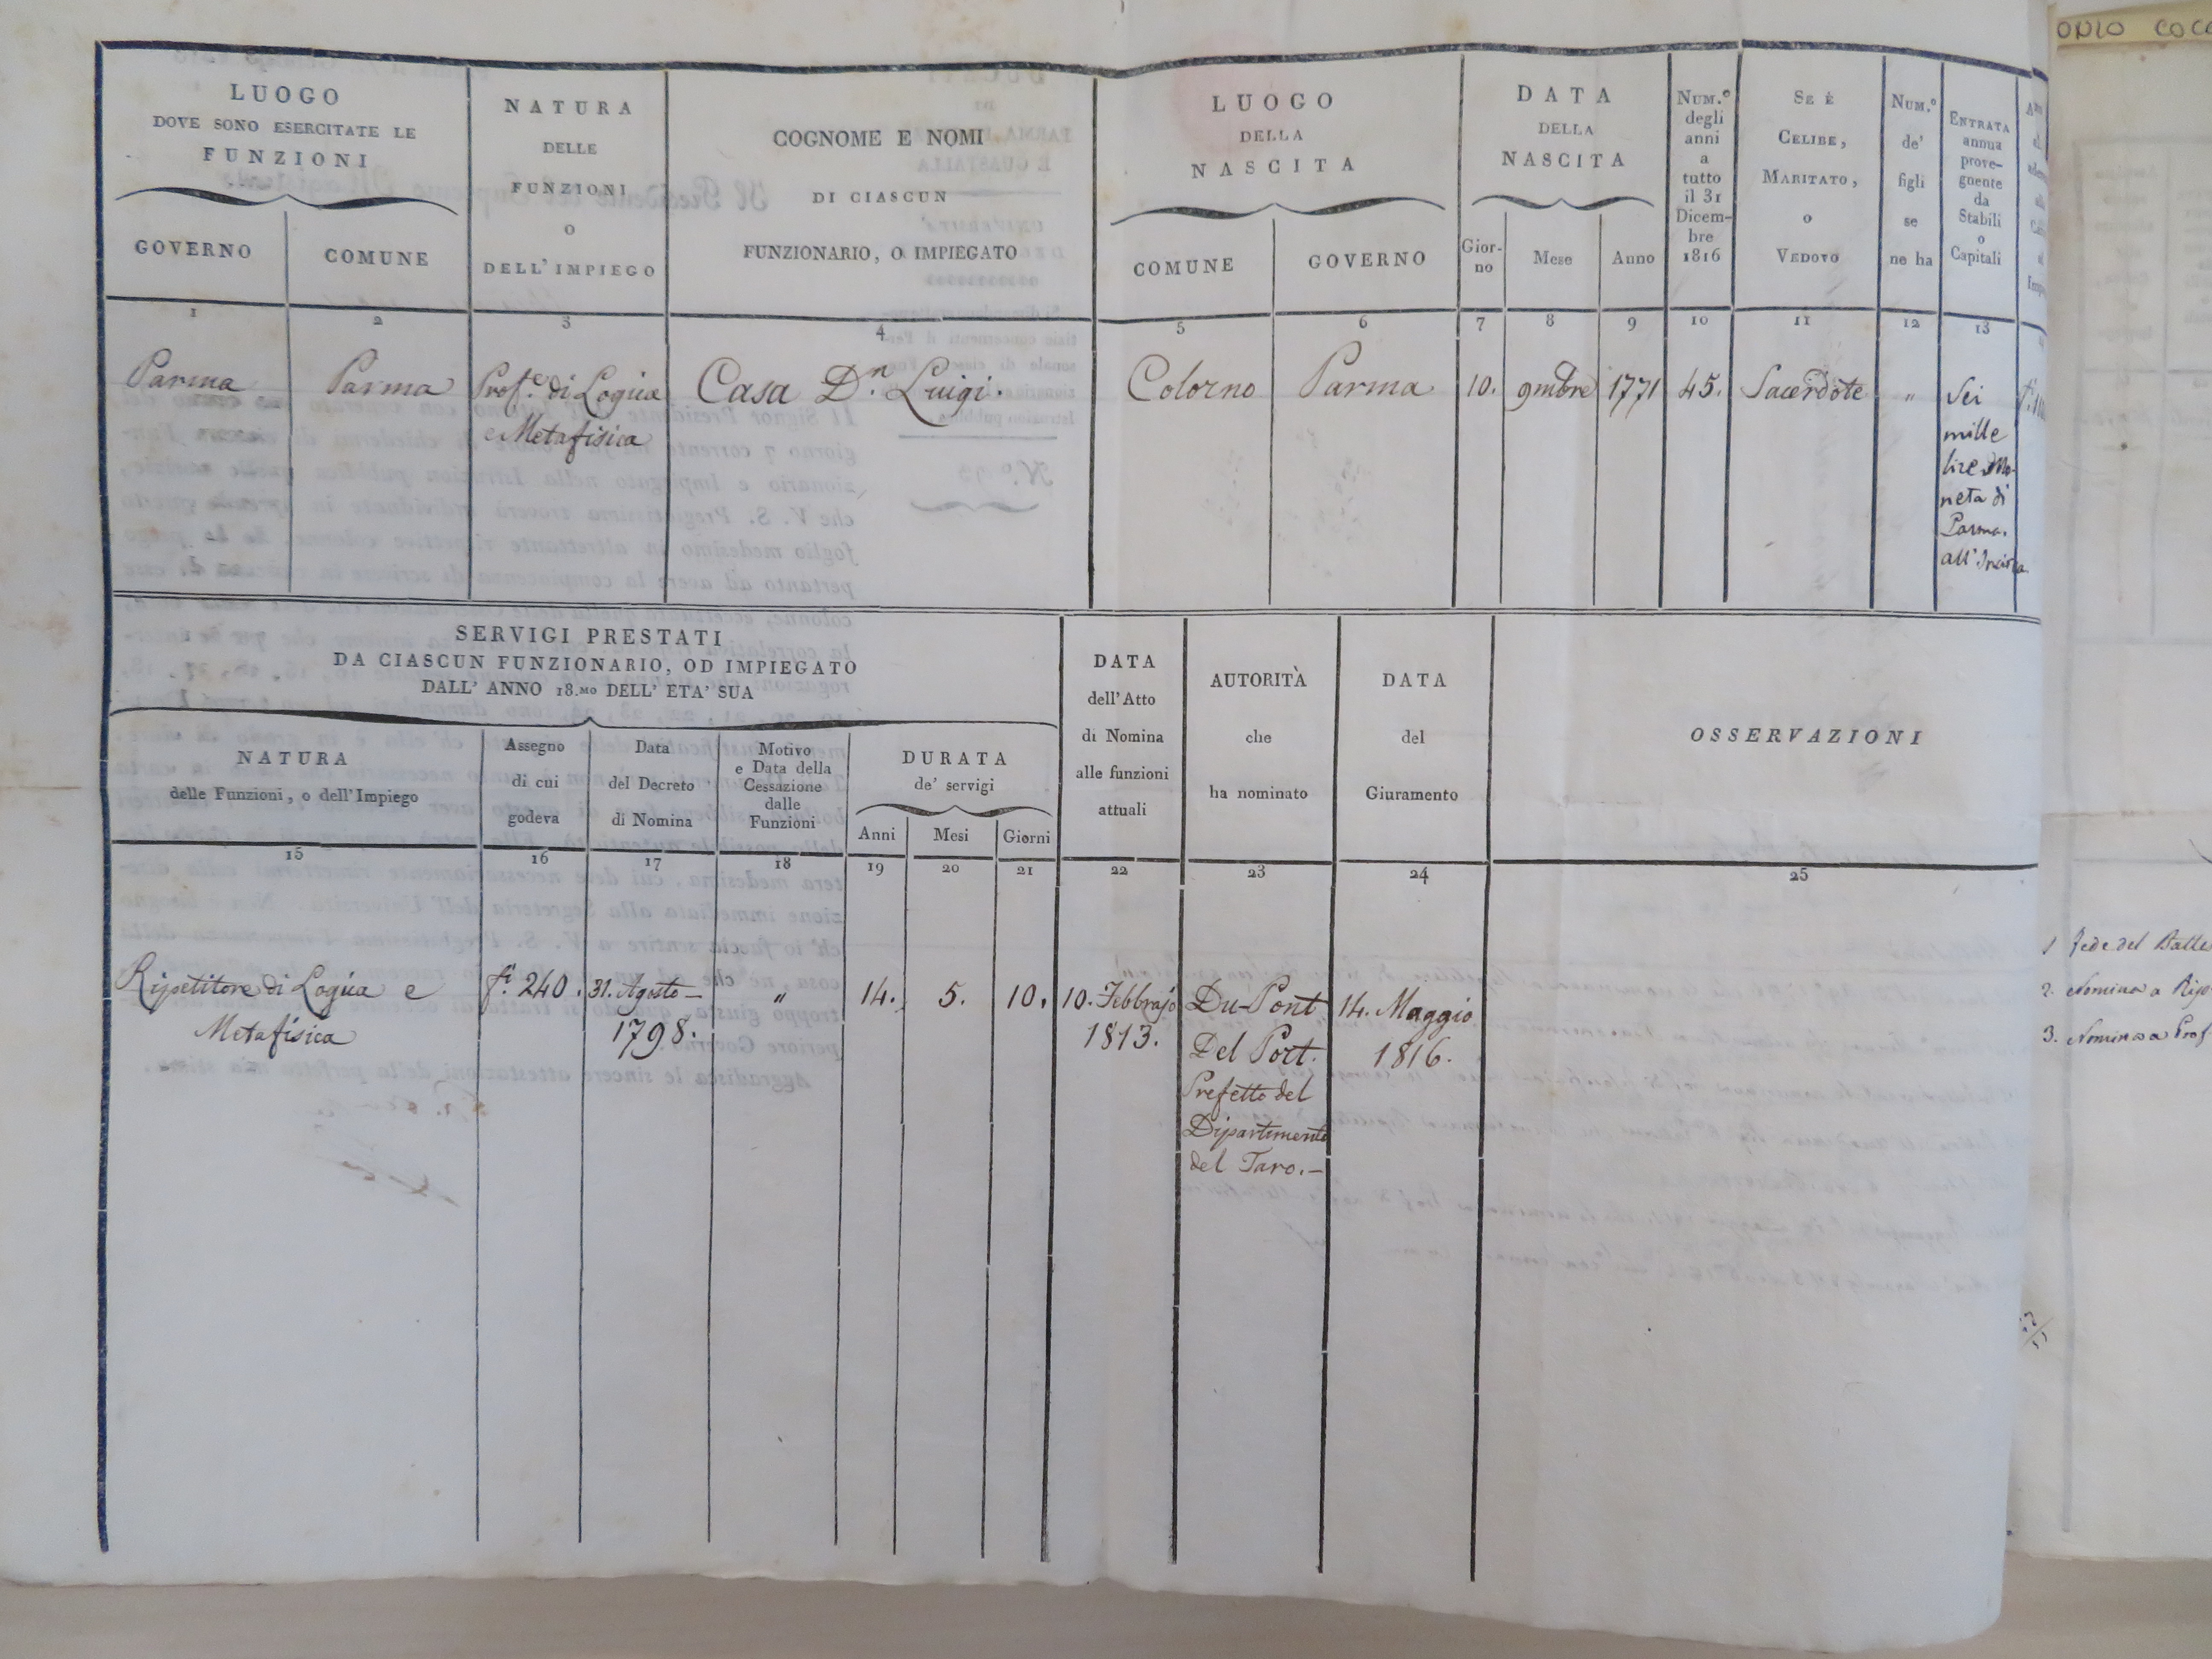 LUOGO
DOVE SONO ESERCITATE LE
FUNZIONI
GOVERNO
COMUNE
NATURA
DELLE
FUNZIONI
O
DELL' IMPIEGO
COGNOME E NOMI
DI CIASCUN
FUNZIONARIO, O IMPIEGATO
LUOGO
DELLA
NASCITA
COMUNE
GOVERNO
DATA
DELLA
NASCITA
Gior-
no
Mese
Anno
NUM.º
degli
anni
a
tutto
il 31
Dicem-
bre
1816
SE È
CELIBE,
MARITATO,
O
VEDOVO
NUM.º
de'
figli
se
ne ha
ENTRATA
annua
prove-
gnente
da
Stabili
o
Capitali
1 2 3 4 5 6 7 8 9 10 11 12 13
Parma
Parma
Prof.e di Logica
e Metafisica
Casa D.n Luigi.
Colorno
Parma
10.
9mbre
1771
45.
Sacerdote
"
Sei
mille
lire Mo-
neta di
Parma.
all'
SERVIGI PRESTATI
DA CIASCUN FUNZIONARIO, OD IMPIEGATO
DALL' ANNO 18.MO DELL' ETA' SUA
NATURA
delle Funzioni, o dell' Impiego
Assegno
di cui
godeva
Data
del Decreto
di Nomina
Motivo
e Data della
Cessazione
dalle
Funzioni
DURATA
de' servigi
Anni
Mesi
Giorni
DATA
dell' Atto
di Nomina
alle funzioni
attuali
AUTORITÀ
che
ha nominato
DATA
del
Giuramento
OSSERVAZIONI
15 16 17 18 19 20 21 22 23 24 25
Ripetitore di Logica e
Metafisica
f.i 240.
31. Agosto —
1798.
"
14.
5.
10.
10. Febbrajo
1813.
Du-Pont
Del Port.
Prefetto del
Dipartimento
del Taro. —
14. Maggio
1816.
1 Fede del
2. Nomina a
3. Nomina a Prof